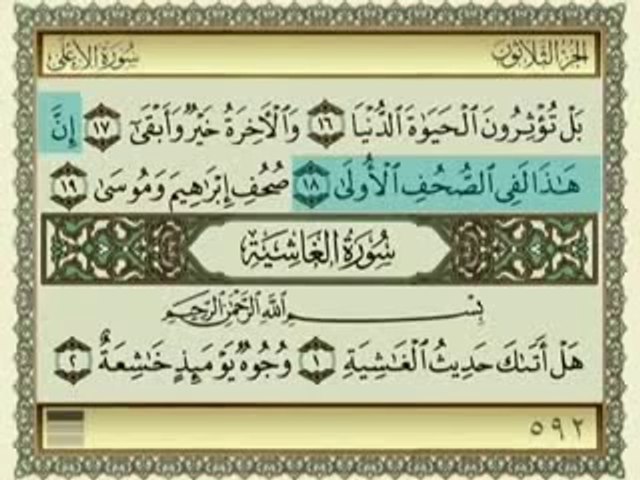 الجزء الثلاثون
سورة الأعلى
بَلْ تُؤْثِرُونَ ٱلْحَيَوٰةَ ٱلدُّنْيَا ١٦ وَٱلْأَخِرَةُ خَيْرٌ وَأَبْقَىٰٓ ١٧ إِنَّ
هَٰذَا لَفِى ٱلصُّحُفِ ٱلْأُولَىٰ ١٨ صُحُفِ إِبْرَٰهِيمَ وَمُوسَىٰ ١٩
سُورَةُ الغَاشِيَةِ
بِسْمِ اللَّهِ الرَّحْمَٰنِ الرَّحِيمِ
هَلْ أَتَىٰكَ حَدِيثُ ٱلْغَٰشِيَةِ ١ وُجُوهٌ يَوْمَئِذٍ خَٰشِعَةٌ ٢
٥٩٢